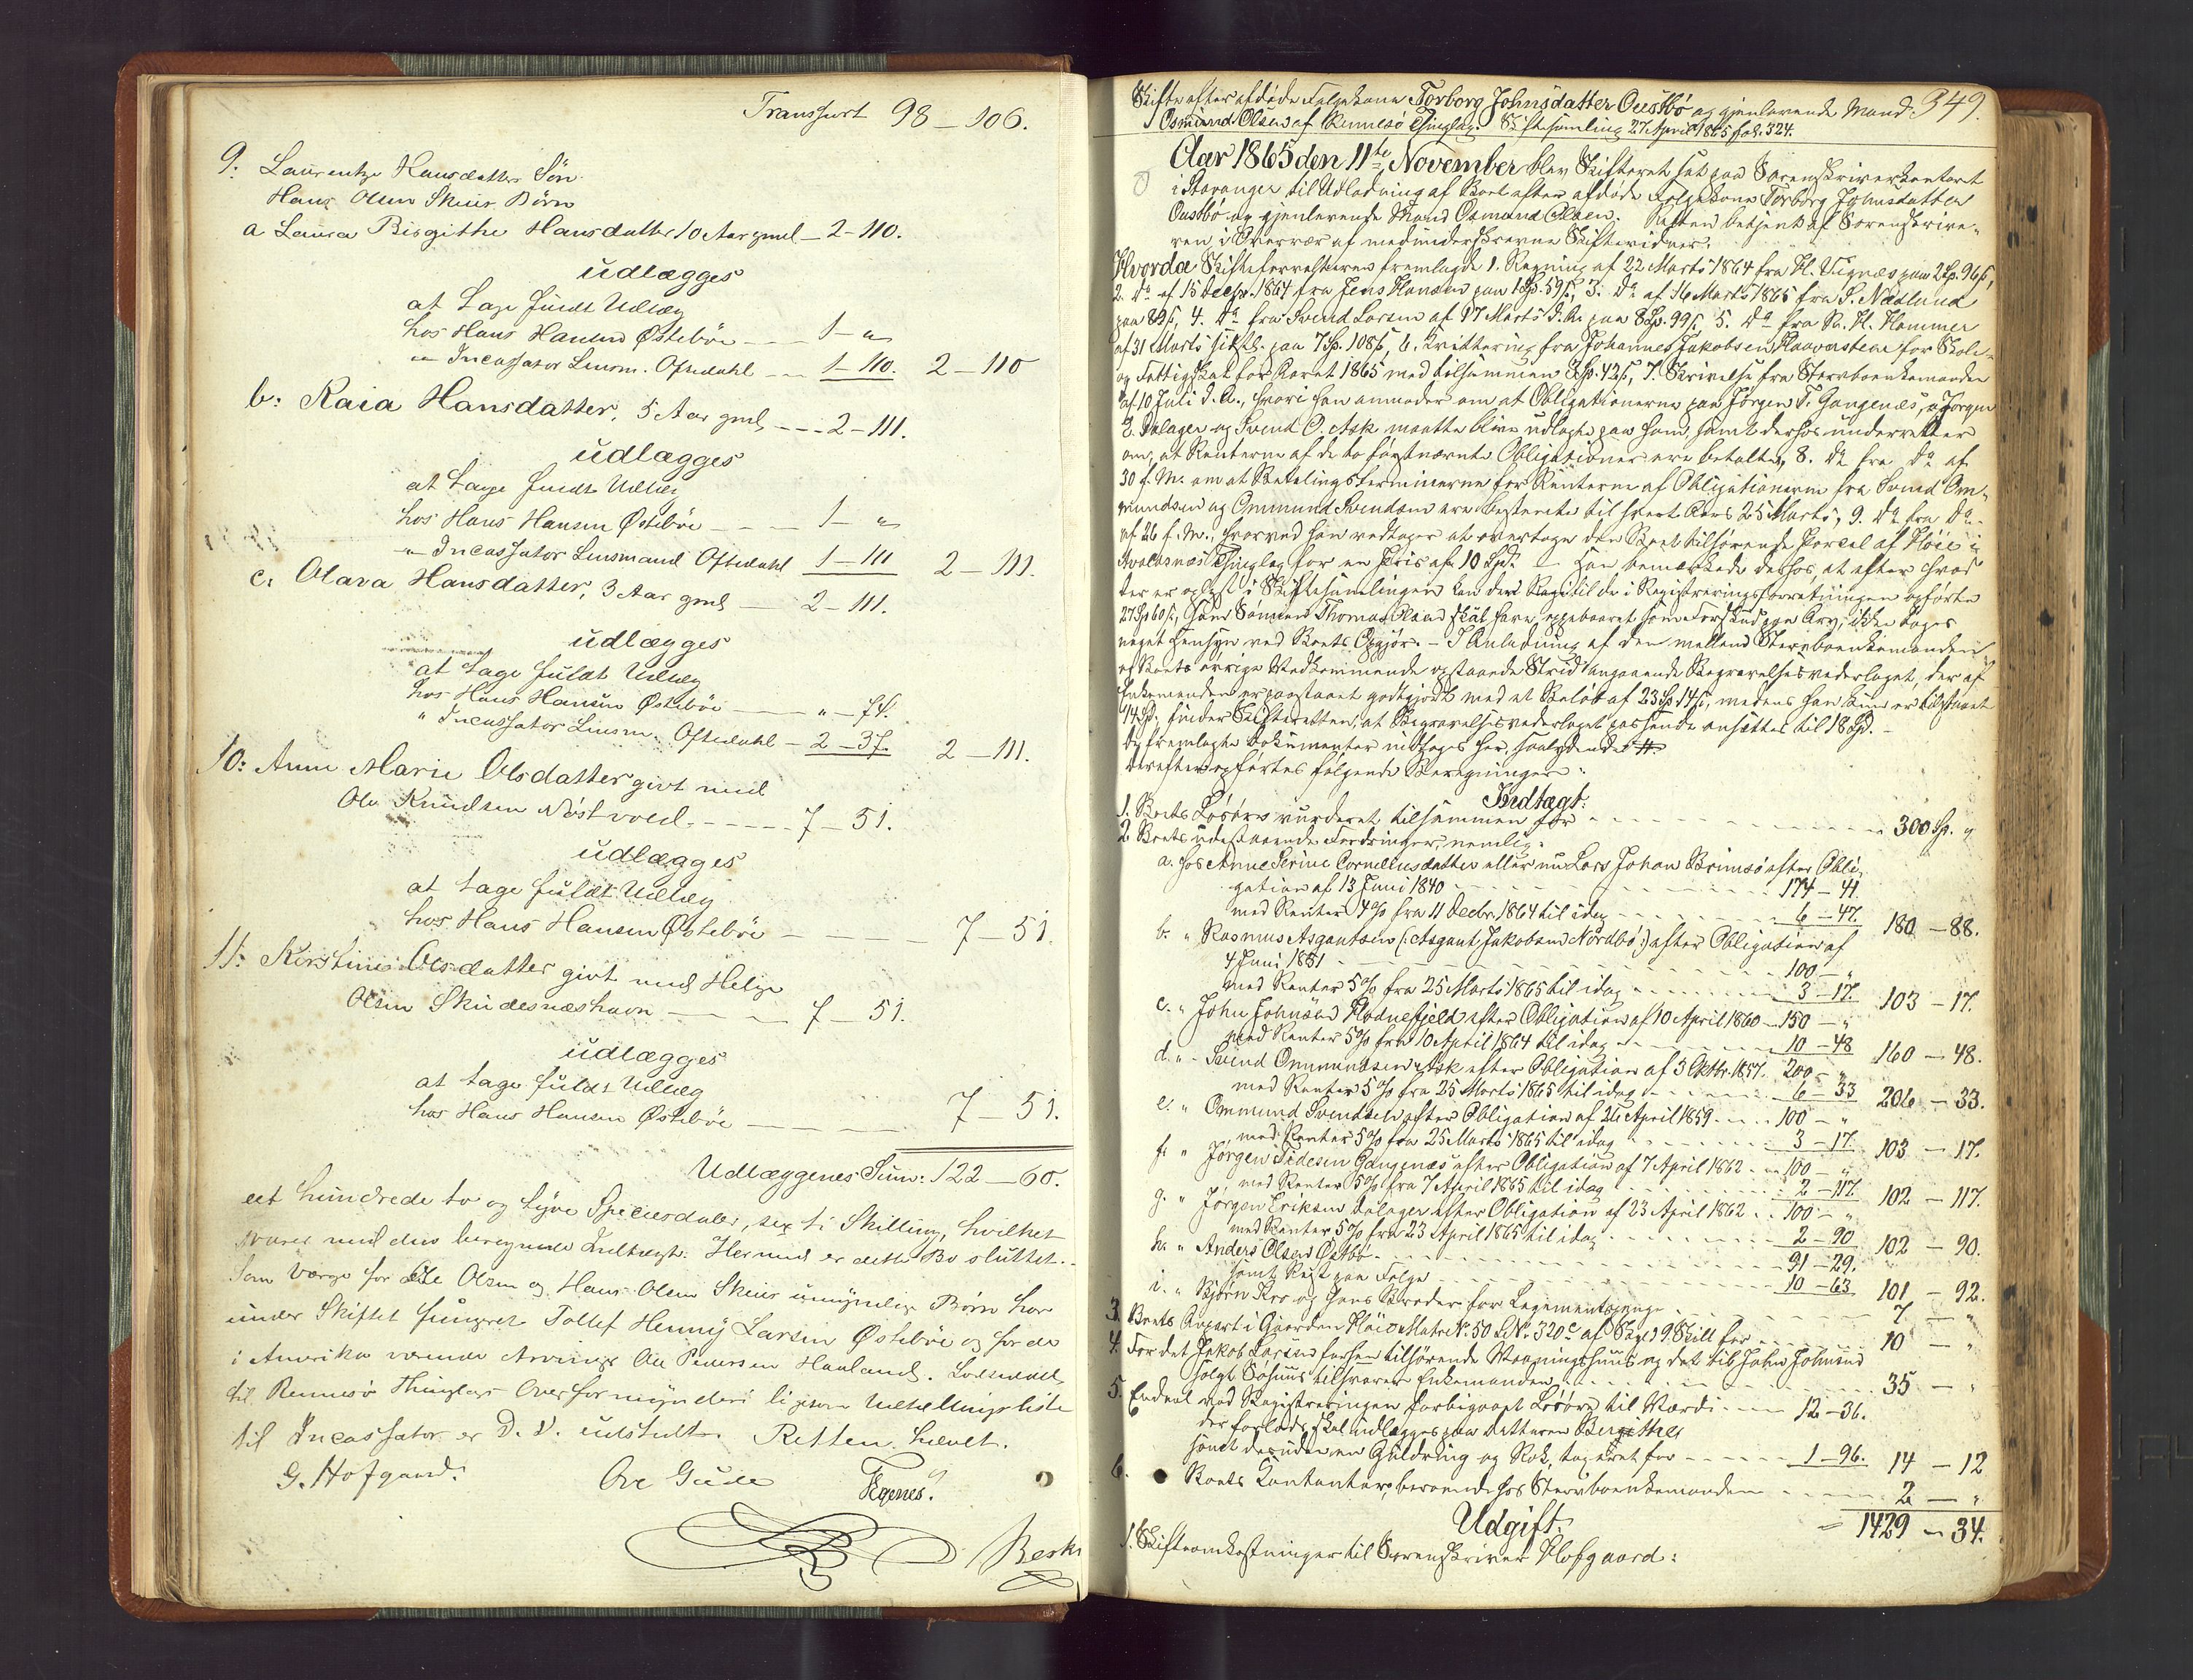 Transport 98 – 106.
9: Laurentze Hansdatters Søn
Hans Olsen Skeies Børn
a Laura Birgithe Hansdatter 10 Aar gml – 2 – 110.
udlægges
at tage fuldt Udlæg
hos Hans Hansen Østebøe – – 1 – "
" Incassator Lensm. Oftedahl – – 1 – 110. 2 – 110
b: Raia Hansdatter, 5 Aar gml – – – 2 – 111.
udlægges
at tage fuldt Udlæg
hos Hans Hansen Østebøe – – – 1 – "
" Incassator Lensmand Oftedahl 1 – 111 2 – 111.
c: Olava Hansdatter, 3 Aar gml – 2 – 111.
udlægges
at tage fuldt Udlæg
hos Hans Hansen Østebøe – " – 74.
" Incassator Lensm. Oftedahl – 2 – 37. 2 – 111.
10: Anne Marie Olsdatter givt med
Ole Knudsen Nøstvold – – – – 7 – 51.
udlægges
at tage fuldt Udlæg
hos Hans Hansen Østebøe – – – – 7 – 51.
11: Kirstine Olsdatter givt med Helge
Olsen Skudesnæshavn – – – 7 – 51.
udlægges
at tage fuldt Udlæg
hos Hans Hansen Østebøe – – – 7 – 51.
Udlæggenes Sum: 122 – 60.
eet hundrede to og tyve Speciesdaler, sexti Skilling, hvilket
svarer med den beregnede Indtægt. Hermed er dette Bo sluttet. –
Som Værge for Ole Olsen og Hans Olsen Skeies umyndige Børn har
under Skiftet fungeret Tollef Henny Larsen Østebøe og for de
i Amerika værende Arvinger Ole Pedersen Haaland. Lodseddel
til Rennesø Thinglags Overformynderi ligesom Udtællingsliste
til Incassator er D. D. udstedt. Retten hævet.
G. Hofgaard. Ove Gude Tegenes.
Beskr
Skifte efter afdøde Folgekone Torborg Johnsdatter Oustbø og gjenlevende Mand 349.
Osmund Olsen af Rennesø Thinglag. Skiftesamling 27 April 1865 fol. 324.
Aar 1865 den 11te November blev Skifteret sat paa Sorenskriverkontoret
i Stavanger til Udlodning af Boet efter afdøde Folgekone Torborg Johnsdatter
Oustbø og gjenlevende Mand Osmund Olsen. Retten betjent af Sorenskrive-
ren i Overvær af medunderskrevne Skiftevidner.
Hvorda Skifteforvalteren fremlagde 1. Regning af 22 Marts 1864 fra H. Vignæs paa 2 Sp. 96 ß,
2. Do af 15 Decbr. 1864 fra Jens Hansen paa 1 Sp. 59 ß, 3. Do af 16 Marts 1865 fra S. Nædlund
paa 89 ß, 4. Do fra Svend Larsen af 17 Marts d. A. paa 8 Sp. 99 ß, 5. Do fra R. H. Hammer
af 31 Marts sidstl. paa 7 Sp. 108 ß, 6. Kvittering fra Johannes Jakobsen Haaverstein for Skole-
og Fattigskat for Aaret 1865 med tilsammen 2 Sp. 42 ß, 7. Skrivelse fra Stervboenkemanden
af 10 Juli d. A., hvori han anmoder om at Obligationerne paa Jørgen T. Gangenæs, Jørgen
E. Dalager og Svend O. Ask maatte blive udlagte paa ham, samt derhos underretter
om, at Renterne af de to førstnævnte Obligationer ere betalte, 8. Do fra Do af
30 f. M. om at Betalingsterminerne for Renterne af Obligationerne fra Svend Om-
mundsen og Ommund Svendsen ere bestemte til hvert Aars 25 Marts, 9. Do fra Do
af 26 f. M., hvorved han vedtager at overtage den Boet tilhørende Parcel af Høie i
Avaldsnæs Thinglag for en Pris af 10 Spd. – Han bemærkede derhos, at efter hvad
der er oplyst i Skiftesamlingen kan der Bagitil de i Registreringsforretningen opførte
27 Sp 60 ß, som Sønnen Thomas Olsen skal have oppebaaret som Forskud paa Arv, ikke tages
noget Hensyn ved Boets Opgjør. – I Anledning af den mellem Stervboenkemanden
og Boets øvrige Vedkommende opstaaede Strid angaaende Begravelsesvederlaget, der af
Enkemanden er paastaaet godtgjort med et Beløb af 23 Sp 14 ß, medens han kun er tilstaaet
14 Sp. finder Skifteretten, at Begravelsesvederlaget passende ansættes til 18 Sp. –
De fremlagte Dokumenter indtages her, saalydende #
Derefter opførtes følgende Beregninger:
Indtægt:
1. Boets Løsøre vurderet tilsammen for – – – 300 Sp. "
2 Boets udestaaende Fordringer, nemlig:
a. hos Anne Serine Corneliusdatter eller nu Lars Johan Brimsø efter Obli-
gation af 13 Juni 1840 – – – 174 – 41.
med Renter 4 % fra 11 Decbr. 1864 til idag – – – 6 – 47. 180 – 88.
b. " Rasmus Asgautsen (: Asgaut Jakobsen Nordbø :) efter Obligation af
4 Juni 1851 – – – 100 – "
med Renter 5 % fra 25 Marts 1865 til idag – – – 3 – 17. 103 – 17.
c. " John Johnsen Hodnefjeld efter Obligation af 10 April 1860 – 150 – "
med Renter 5 % fra 10 April 1864 til idag – – – 10 – 48 160 – 48.
d. " Svend Ommundsen Ask efter Obligation af 3 Oktbr. 1857. 200 – "
med Renter 5 % fra 25 Marts 1865 til idag – – – 6 – 33 206 – 33.
e. " Ommund Svendsen efter Obligation af 26 April 1859 – – 100 – "
med Renter 5 % fra 25 Marts 1865 til idag – – – 3 – 17. 103 – 17.
f. " Jørgen Tidesen Gangenæs efter Obligation af 7 April 1862 – – 100 – "
med Renter 5 % fra 7 April 1865 til idag – – – 2 – 117. 102 – 117.
g. " Jørgen Eriksen Dalager efter Obligation af 23 April 1862 – – 100 – "
med Renter 5 % fra 23 April 1865 til idag – – – 2 – 90 102 – 90.
h. " Anders Olsen Østbø – – – 91 – 29.
samt Rest paa Følge – – – 10 – 63 101 – 92.
i. " Bjørn Kro og hans Broder for Legementspenge – – – 7 – "
3. Boets Anpart i Gaarden Høie Matr. No. 50 L. No. 320c af Skyld 9 Skill for – – – 10 – "
4. For det Jakob Larsen forhen tilhørende Vaaningshuus og det til John Johnsen
solgt Søhuus tilsvarer Enkemanden – – – 35 – "
5. Endeel ved Registreringen forbigaaet Løsøre til Værdi – – 12 – 36.
der forlods skal udlægges paa Datteren Bergithe
samt desuden en Guldring og Rok, taxeret for – – – 1 – 96. 14 – 12
6. Boets Contanter, beroende hos Stervboenkemanden – – – 2 – "
= 1429 – 34.
Udgift.
1. Skifteomkostninger til Sorenskriver Hofgaard: